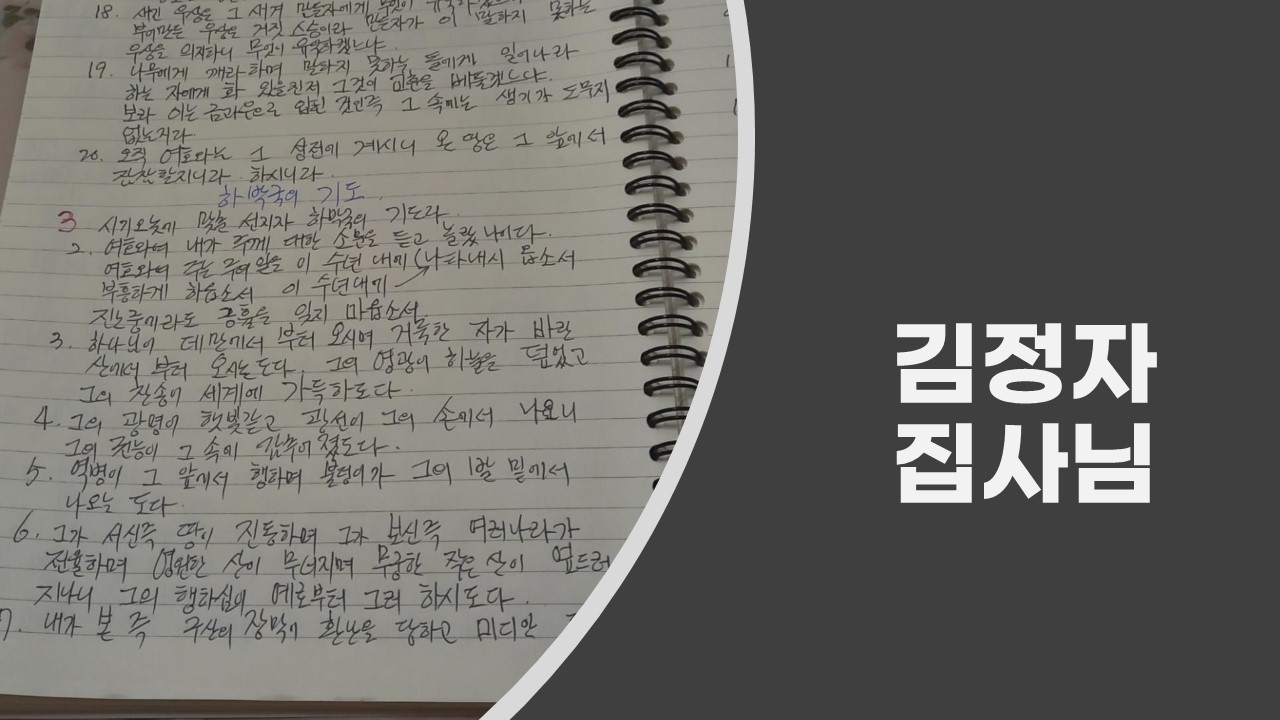 18. 새긴 우상은 그 새겨 만든자에게 무엇이
부어만든 우상은 거짓 스승이라 만든자가 이 말하지 못하는
우상을 의지하니 무엇이 유익하겠느냐.
19. 나무에게 깨라하며 말하지 못하는 돌에게 일어나라
하는 자에게 화 있을진저 그것이 교훈을 베풀겠느냐.
보라 이는 금과은으로 입힌 것인즉 그 속에는 생기가 도무지
없느니라
20. 오직 여호와는 그 성전에 계시니 온 땅은 그 앞에서
잠잠할지니라. 하시니라.
하박국의 기도.
3 시기오놋에 맞춘 선지자 하박국의 기도라.
2. 여호와여 내가 주께 대한 소문을 듣고 놀랐나이다.
여호와여 주는 주의일을 이 수년 내에 (나타내시 옵소서
부흥하게 하옵소서 이 수년내에
진노중에라도 긍휼을 잊지 마옵소서.
3. 하나님이 데만에서 부터 오시며 거룩한 자가 바란
산에서 부터 오시는도다. 그의 영광이 하늘을 덮었고
그의 찬송이 세계에 가득하도다.
4. 그의 광명이 햇빛같고 광선이 그의 손에서 나오니
그의 권능이 그 속에 감추어졌도다.
5. 역병이 그 앞에서 행하며 불덩이가 그의 발 밑에서
나오는 도다.
6. 그가 서신즉 땅이 진동하며 그가 보신즉 여러나라가
전율하며 영원한 산이 무너지며 무궁한 작은 산이 엎드러
지나니 그의 행하심이 예로부터 그러 하시도다.
7. 내가 본 즉 구산의 장막이 환난을 당하고 미디안
김정자
집사님